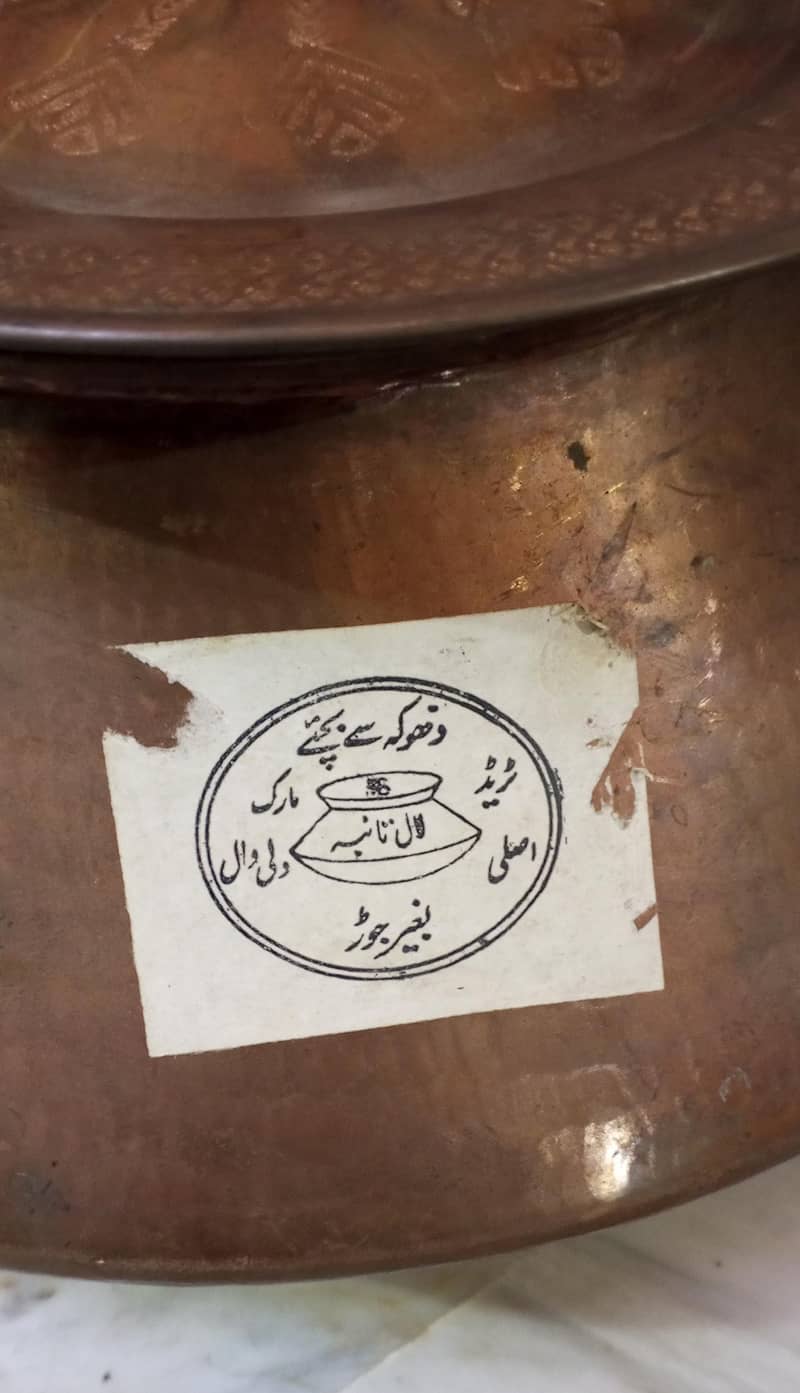 دھوکہ سے بچئے
ٹریڈ مارک
لال تانبہ
اصلی دلی وال
بغیر جوڑ